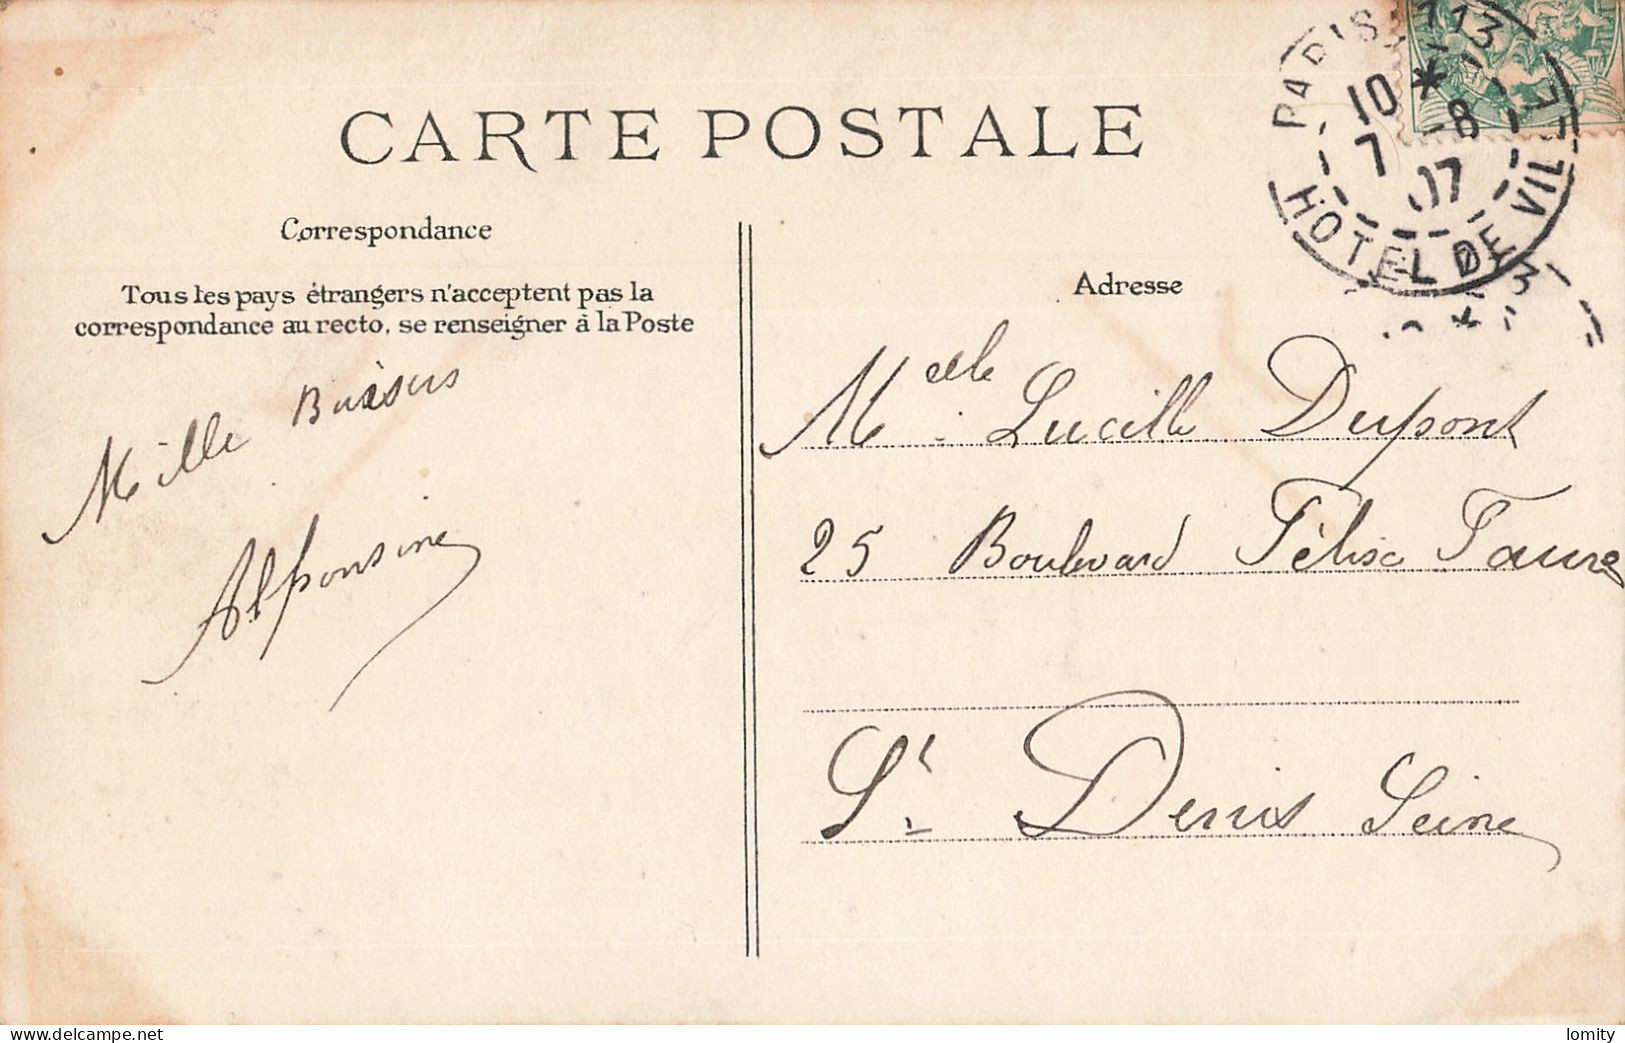 CARTE POSTALE
Correspondance
Tous les pays étrangers n'acceptent pas la
correspondance au recto, se renseigner à la Poste
Mille Baisers
Alphonsine
Adresse
Melle Lucille Dupont
25 Boulevard Félix Faure
St Denis Seine
PARIS 113
10 * 7 -8 07
HOTEL DE VILLE
www.delcampe.net
lomity